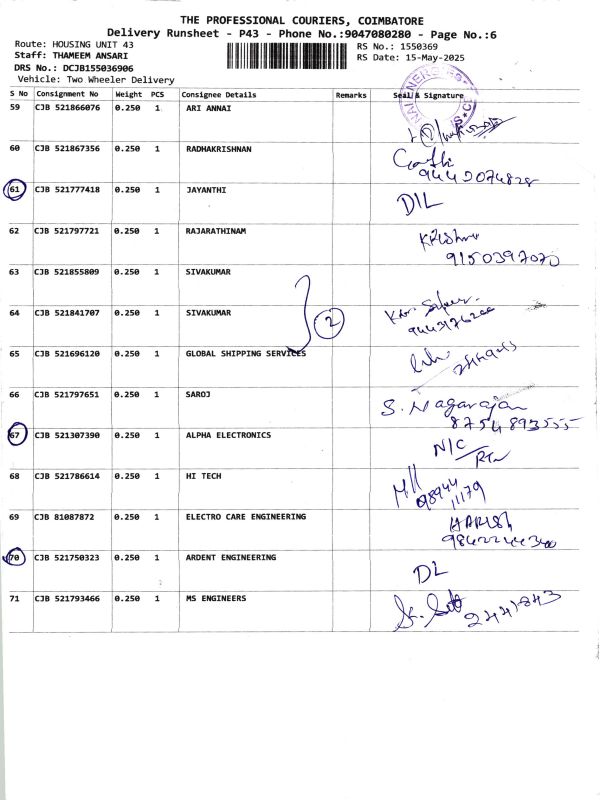 THE PROFESSIONAL COURIERS, COIMBATORE
Delivery Runsheet - P43 - Phone No.:9047080280 - Page No.:6
Route: HOUSING UNIT 43
RS No.: 1550369
Staff: THAMEEM ANSARI
RS Date: 15-May-2025
DRS No.: DCJB155036906
Vehicle: Two Wheeler Delivery
S No Consignment No Weight PCS Consignee Details Remarks Seal & Signature
59 CJB 521866076 0.250 1 ARI ANNAI
60 CJB 521867356 0.250 1 RADHAKRISHNAN
9442074828
61 CJB 521777418 0.250 1 JAYANTHI DIL
62 CJB 521797721 0.250 1 RAJARATHINAM Krishna
9150397070
63 CJB 521855809 0.250 1 SIVAKUMAR
2
64 CJB 521841707 0.250 1 SIVAKUMAR
65 CJB 521696120 0.250 1 GLOBAL SHIPPING SERVICES
66 CJB 521797651 0.250 1 SAROJ S. Nagarajan
8754893555
67 CJB 521307390 0.250 1 ALPHA ELECTRONICS N/C
RTN
68 CJB 521786614 0.250 1 HI TECH 98944
11179
69 CJB 81087872 0.250 1 ELECTRO CARE ENGINEERING HARISH
9842244300
70 CJB 521750323 0.250 1 ARDENT ENGINEERING DL
71 CJB 521793466 0.250 1 MS ENGINEERS 2441843